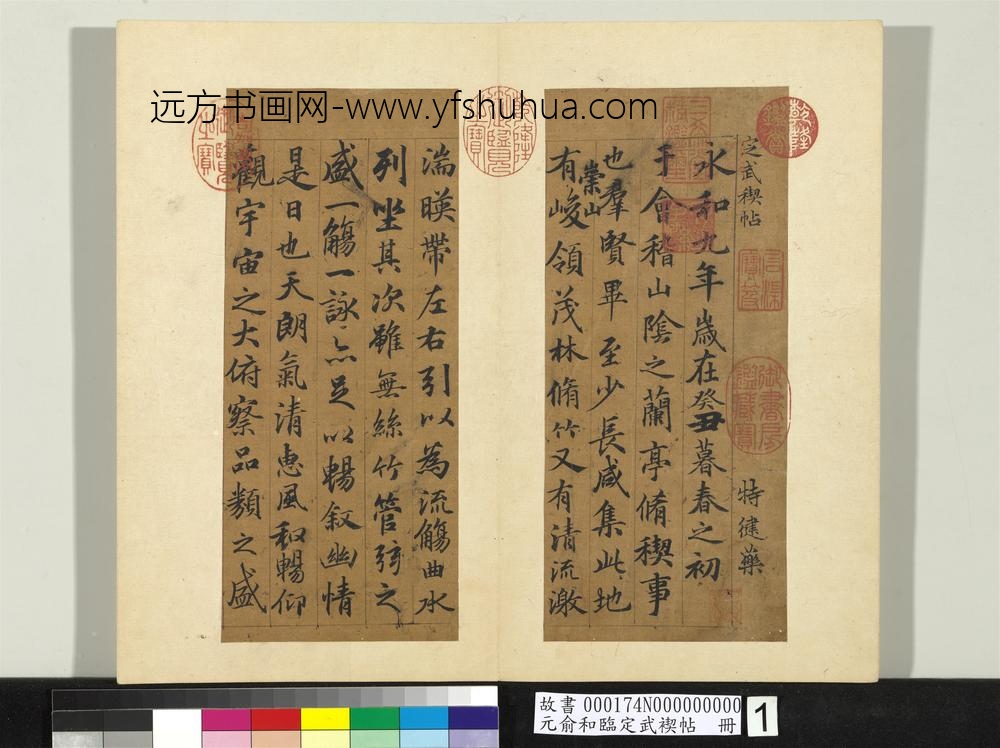 远方书画网-www.yfshuhua.com
乾隆鑑賞
定武禊帖
石渠寶笈
御書房鑑藏寶
特健藥
三希堂精鑑璽
宜子孫
永和九年歲在癸丑暮春之初
于會稽山陰之蘭亭脩稧事
也羣賢畢至少長咸集此地
崇山
有峻領茂林脩竹又有清流激
乾隆御覽之寶
湍暎帶左右引以為流觴曲水
列坐其次雖無絲竹管弦之
盛一觴一詠亦足以暢敘幽情
是日也天朗氣清惠風和暢仰
觀宇宙之大俯察品類之盛
故書 000174N000000000
元俞和臨定武禊帖 冊
1